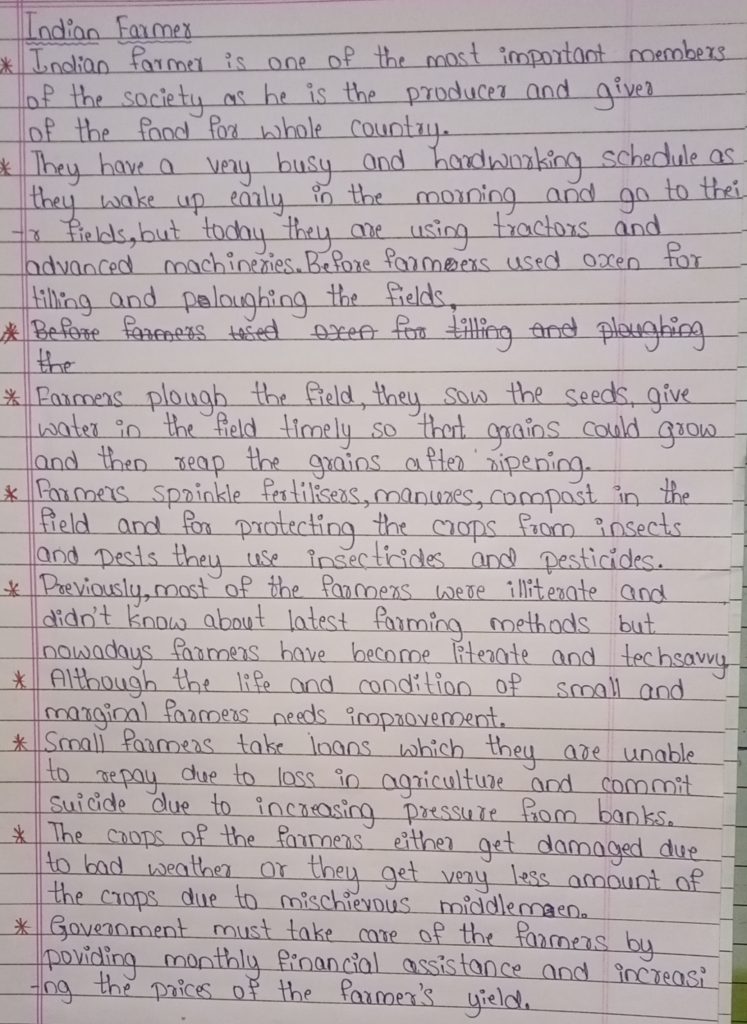 Indian Farmer
* Indian farmer is one of the most important members
of the society as he is the producer and giver
of the food for whole country.
* They have a very busy and hardworking schedule as
they wake up early in the morning and go to thei
-r fields, but today they are using tractors and
advanced machineries. Before farmers used oxen for
tilling and ploughing the fields.
* Before farmers used oxen for tilling and ploughing
the
* Farmers plough the field, they sow the seeds, give
water in the field timely so that grains could grow
and then reap the grains after ripening.
* Farmers sprinkle fertilisers, manures, compost in the
field and for protecting the crops from insects
and pests they use insecticides and pesticides.
* Previously, most of the farmers were illiterate and
didn't know about latest farming methods but
nowadays farmers have become literate and techsavvy
* Although the life and condition of small and
marginal farmers needs improvement.
* Small farmers take loans which they are unable
to repay due to loss in agriculture and commit
suicide due to increasing pressure from banks.
* The crops of the farmers either get damaged due
to bad weather or they get very less amount of
the crops due to mischievous middlemen.
* Government must take care of the farmers by
poviding monthly financial assistance and increasi
-ng the prices of the farmer's yield.